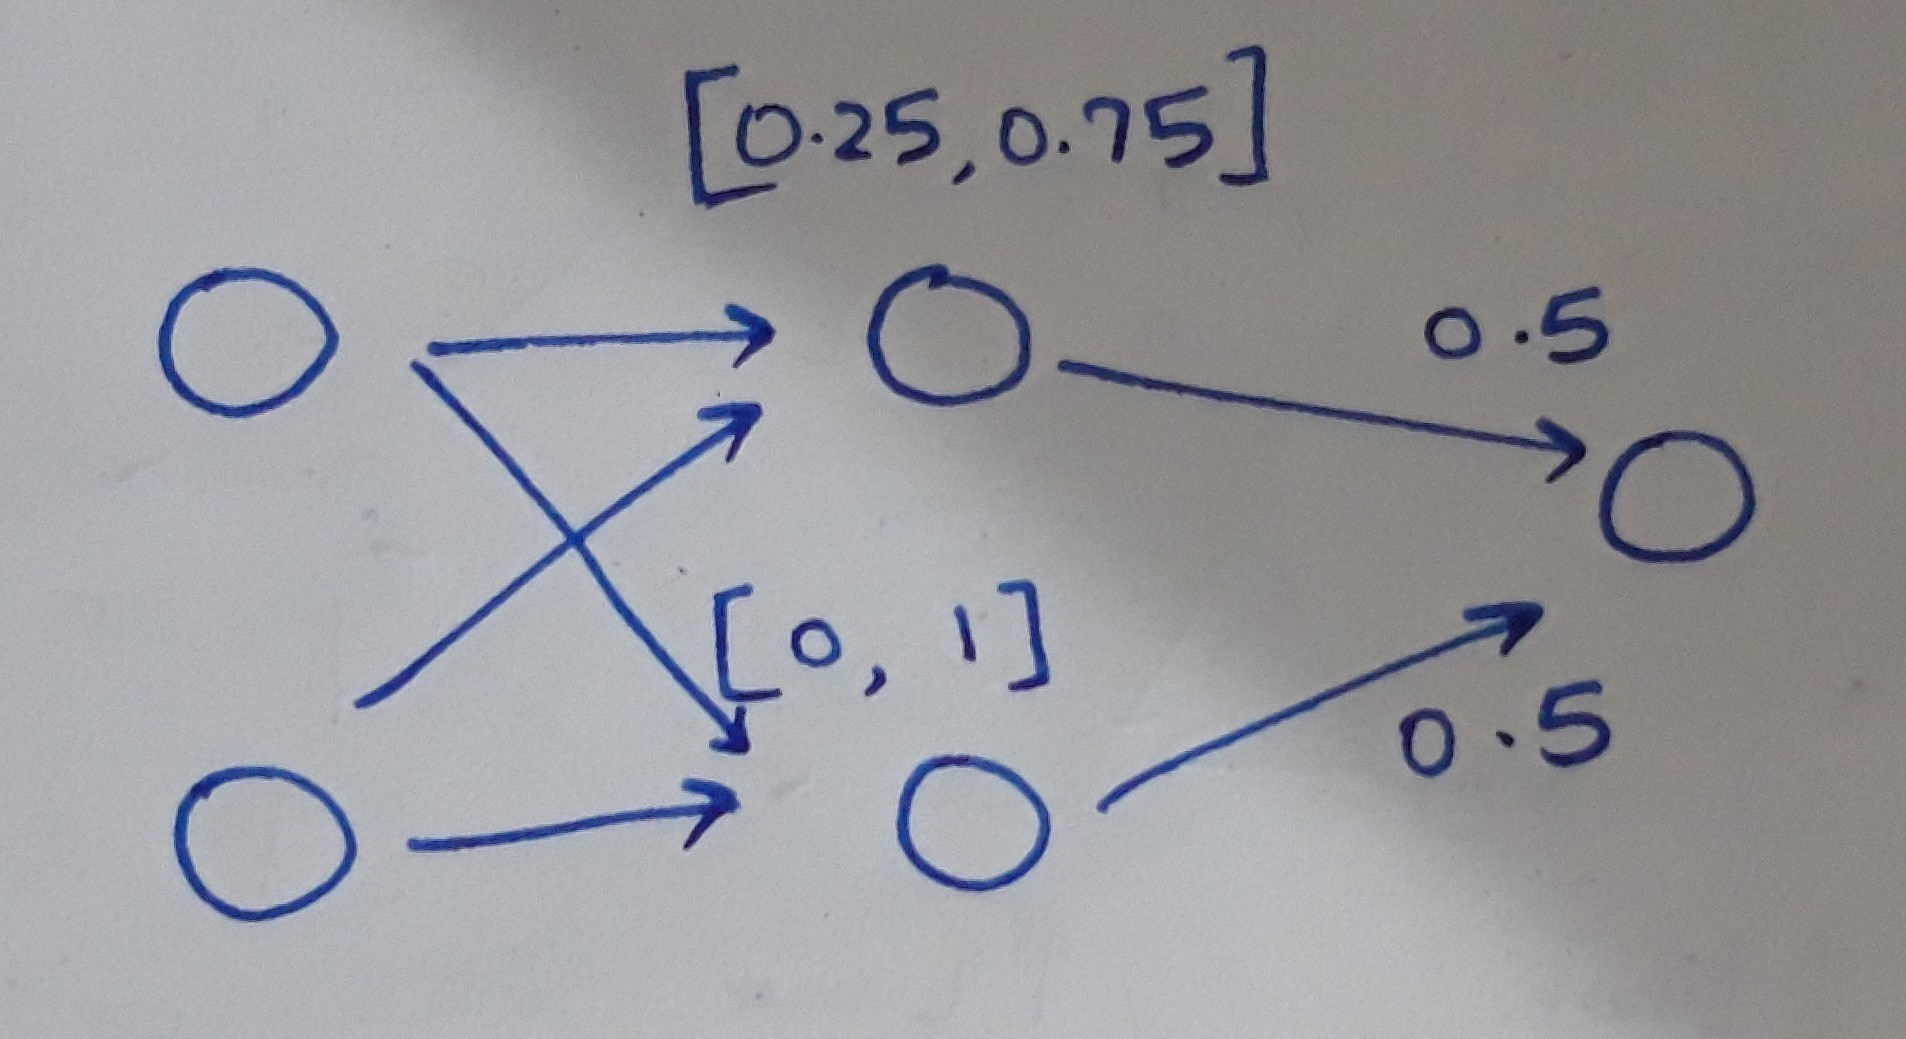 [0.25, 0.75]
0.5
[0, 1]
0.5